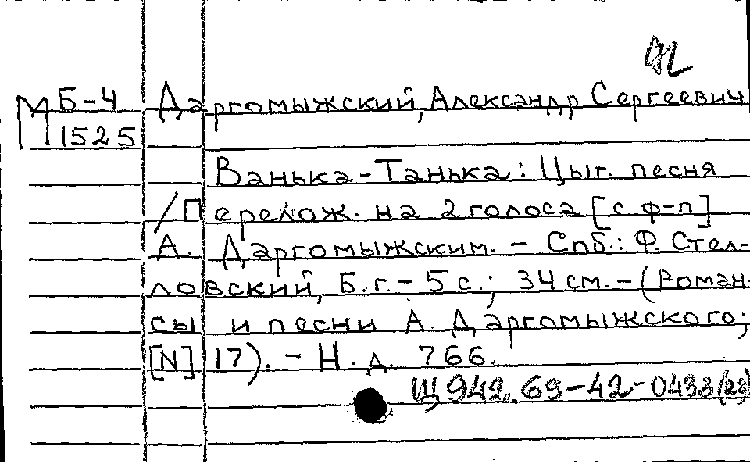 МБ-4 Даргомыжский, Александр Сергеевич
1525
Ванька-Танька: Цыг. песня
/Перелож. на 2 голоса [с ф-п]
А. Даргомыжским. - Спб.: Ф. Стел-
ловский, Б.г. - 5 с.; 34 см. - (Роман-
сы и песни А. Даргомыжского;
[N] 17). - Н.д. 766.
Щ942.69-42-0433(28)